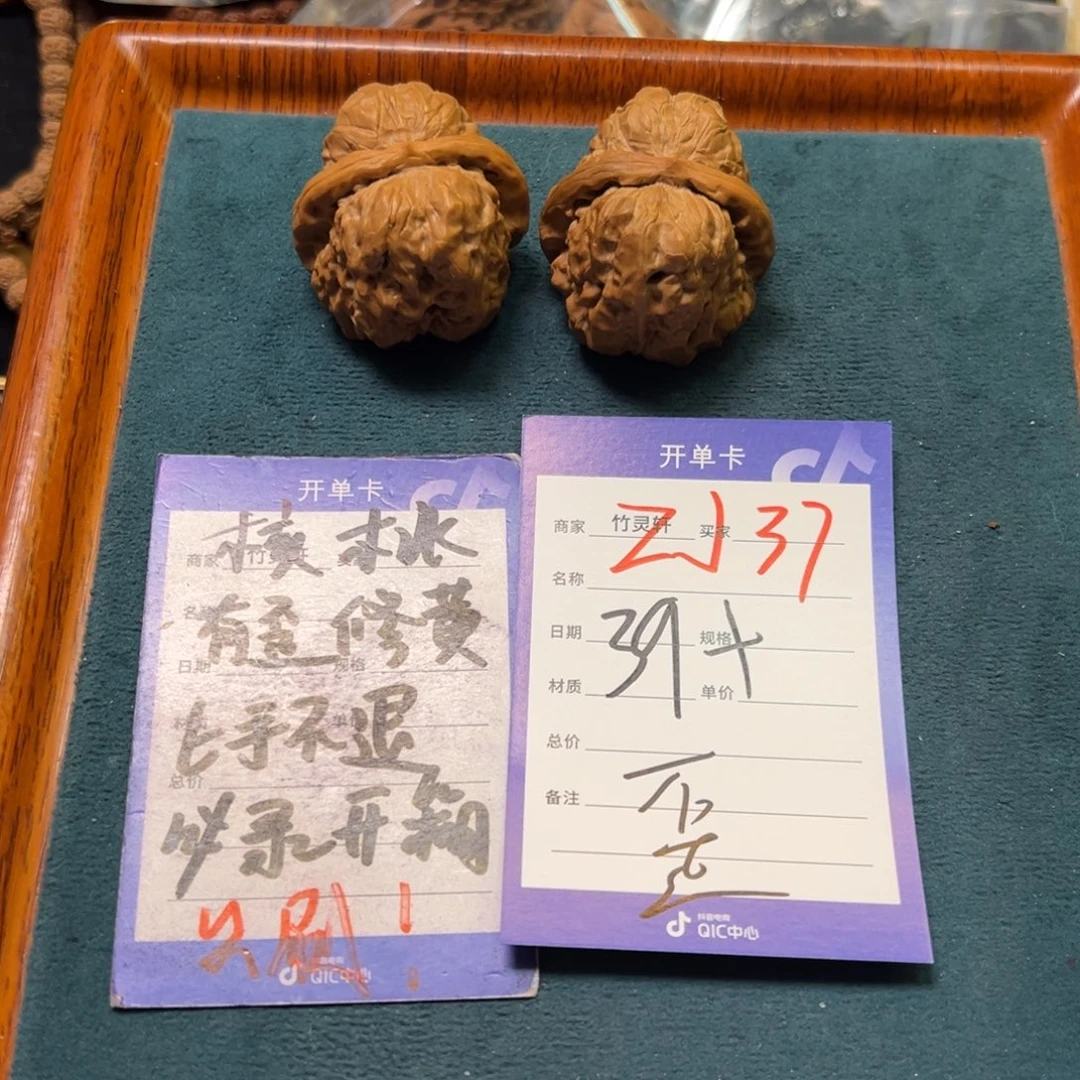 开单卡
核桃
商家 竹灵轩
有歪修黄
日期 规格
上手不退
总价
必录开箱
必刷！
抖音电商
QIC中心
开单卡
商家 竹灵轩 买家
ZJ37
名称
日期 规格
39+
材质 单价
总价
备注
不歪
抖音电商
QIC中心